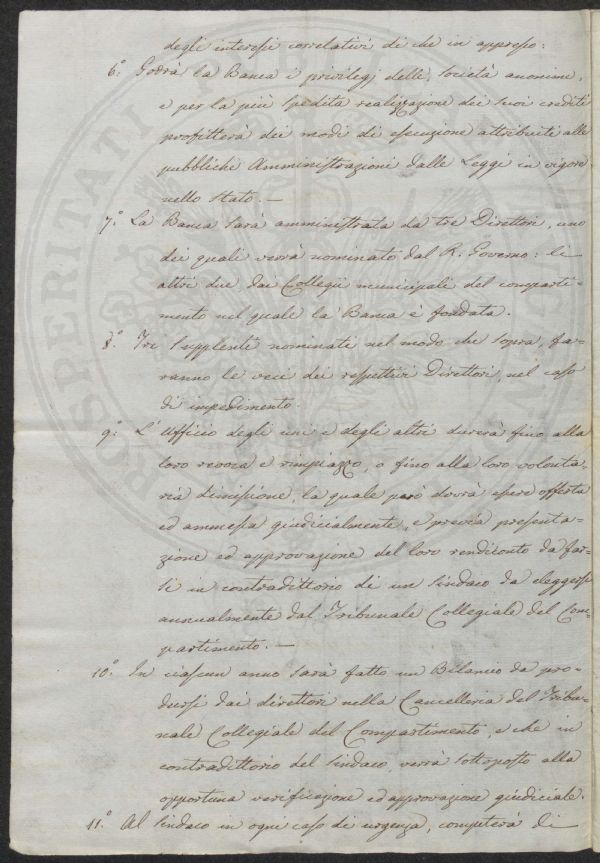 degli interessi correlativi di che in appresso:
6.° Godrà la Banca i privilegj delle società anonime,
e per la più spedita realizzazione dei suoi crediti
profitterà dei modi di esecuzione attribuiti alle
pubbliche Amministrazioni dalle Leggi in vigore
nello Stato. —
7.° La Banca sarà amministrata da tre Direttori, uno
dei quali verrà nominato dal R. Governo: li
altri due dai Collegii municipali del comparti-
mento nel quale la Banca è fondata.
8.° Tre supplenti nominati nel modo che sopra, fa-
ranno le veci dei respettivi Direttori, nel caso
di impedimento.
9.° L'Ufficio degli uni e degli altri durerà fino alla
loro revoca e rimpiazzo, o fino alla loro volonta-
ria dimissione, la quale però dovrà essere offerta
ed ammessa giudicialmente, e previa presenta-
zione ed approvazione del loro rendiconto da far-
si in contradittorio di un Sindaco da eleggersi
annualmente dal Tribunale Collegiale del Com-
partimento. —
10.° In ciascun anno sarà fatto un Bilancio da pro-
dursi dai direttori nella Cancelleria del Tribu-
nale Collegiale del Compartimento, e che in
contradittorio del Sindaco, verrà sottoposto alla
opportuna verificazione ed approvazione giudiciale.
11.° Al Sindaco in ogni caso di urgenza, competerà di
PROSPERITATI PUBLI